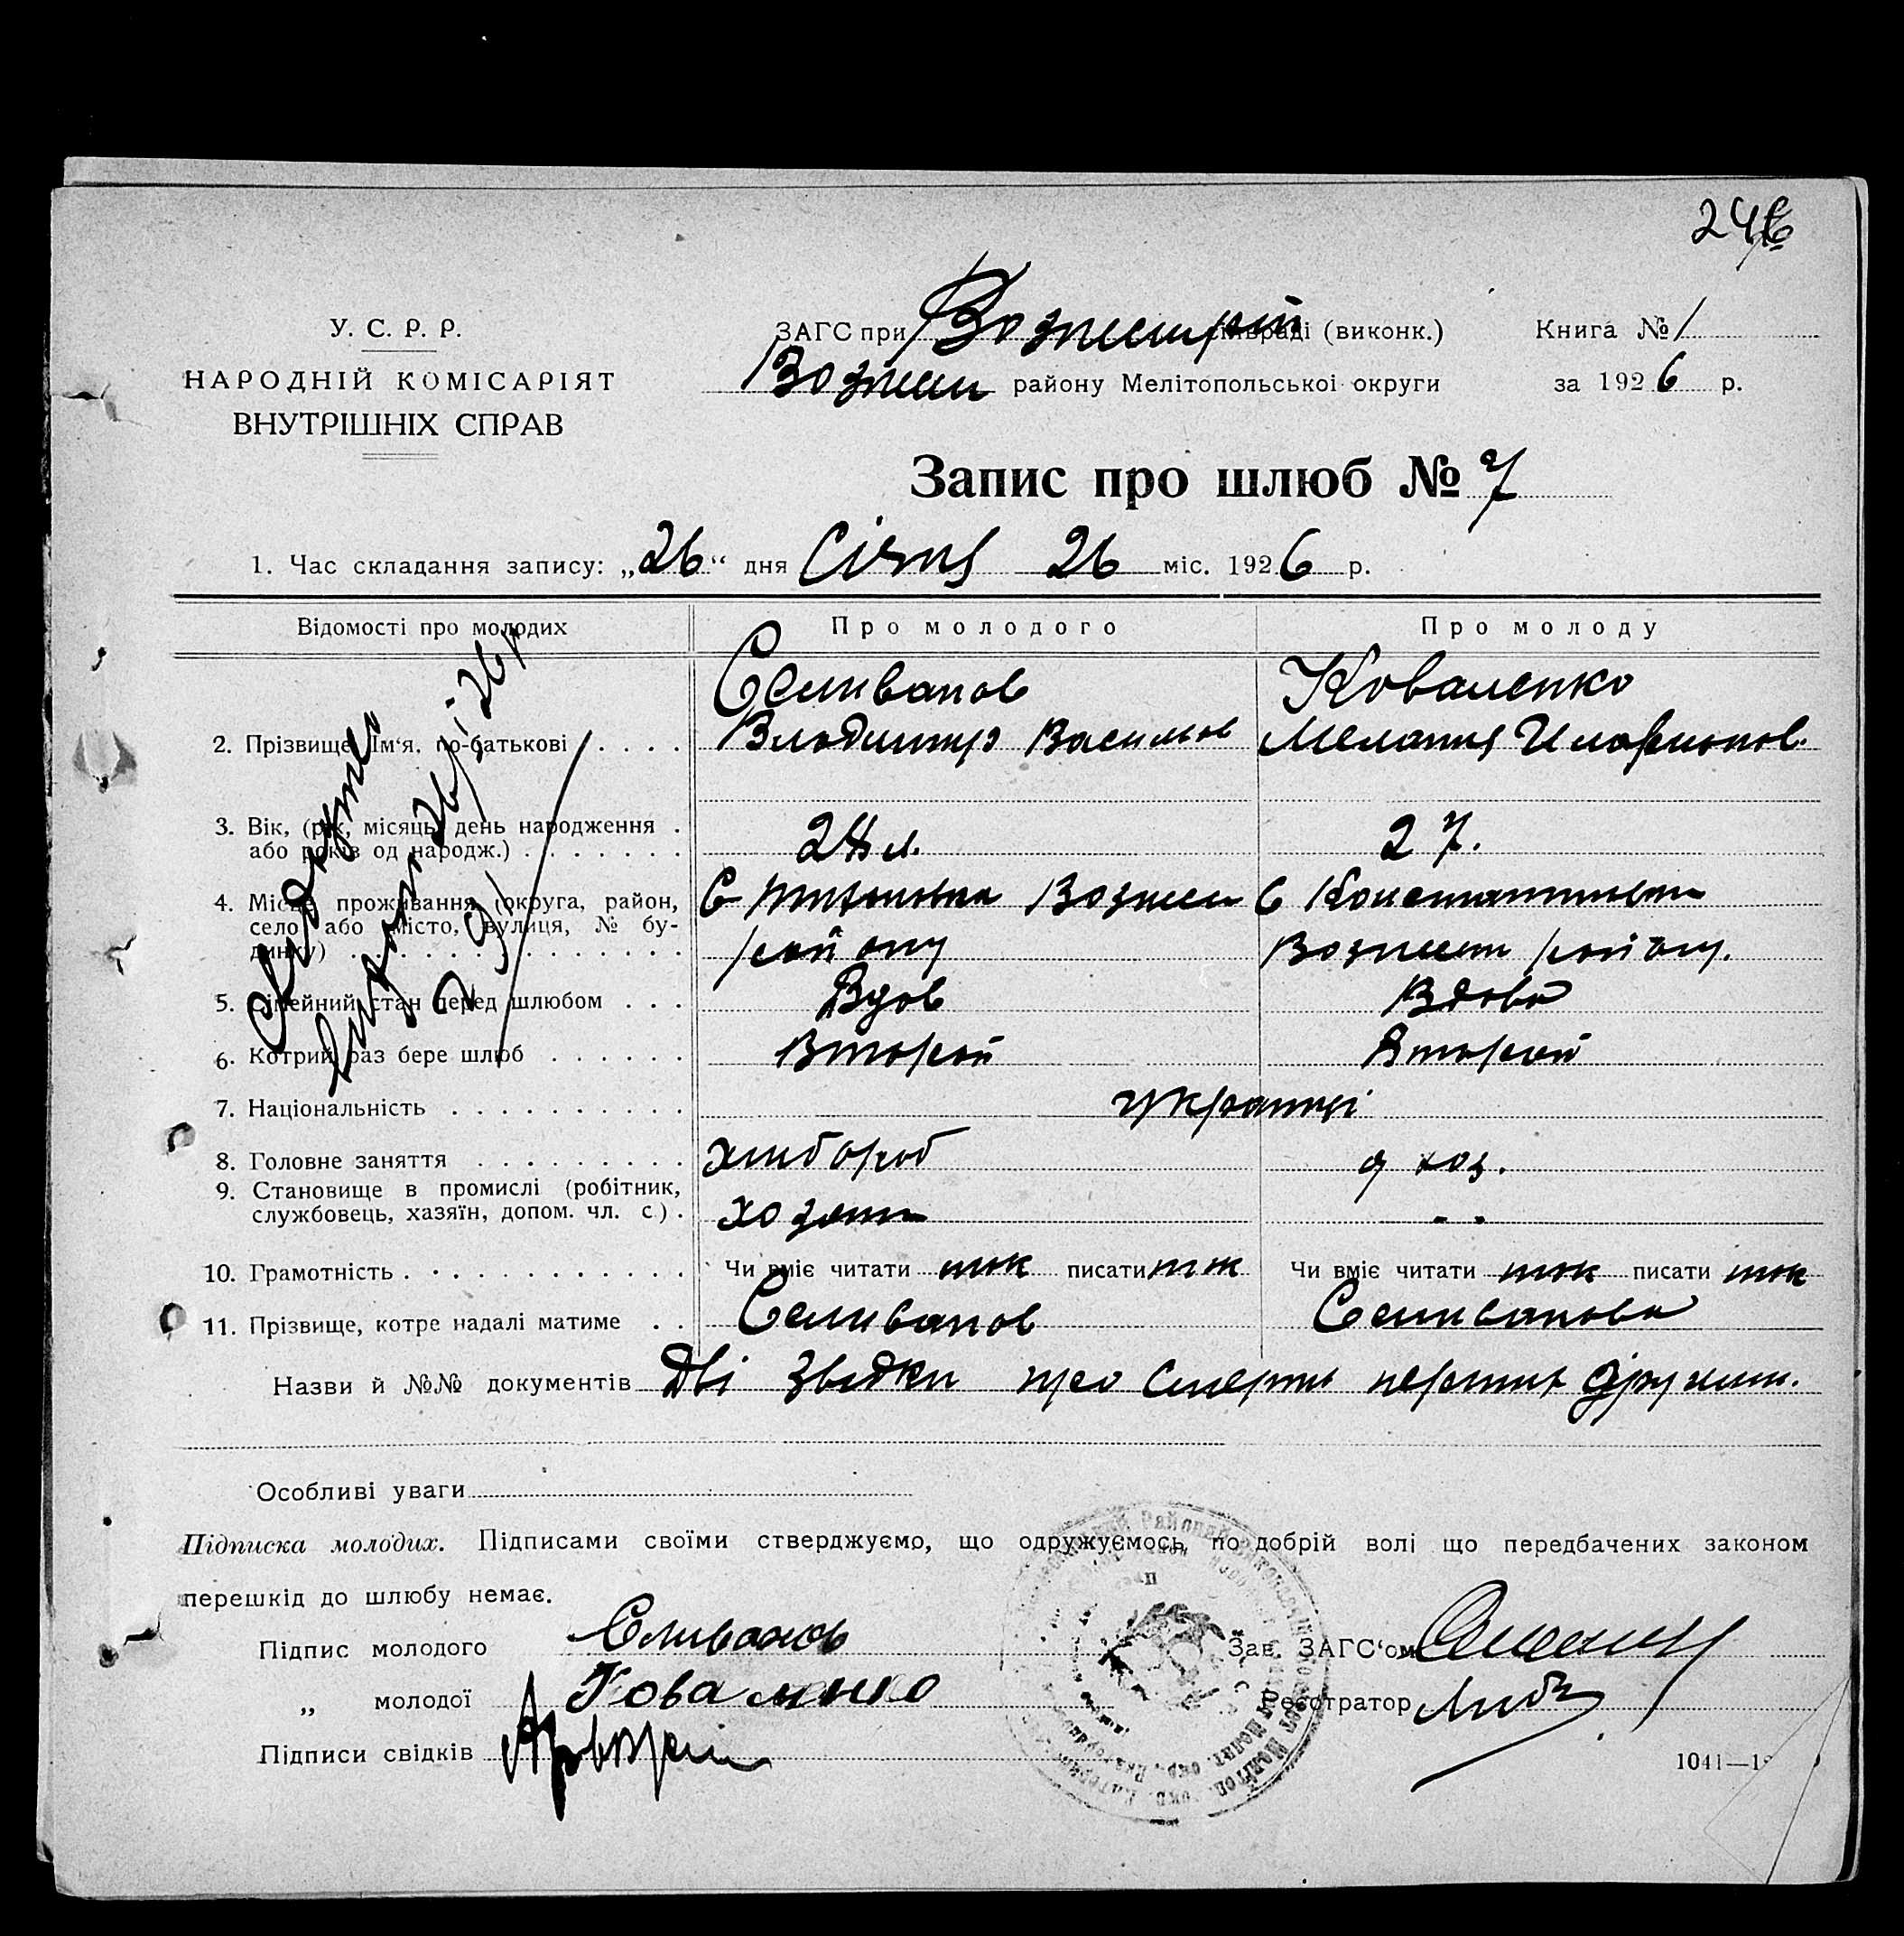 246
У. С. Р. Р.
НАРОДНІЙ КОМІСАРІЯТ
ВНУТРІШНІХ СПРАВ
ЗАГС при Вознес. рай сільраді (виконк.) Книга № 1
Вознесен району Мелітопольської округи за 1926 р.
Запис про шлюб № 7
1. Час складання запису: „26“ дня Січня 26 міс. 1926 р.
Відомості про молодих Про молодого Про молоду
Селиванов Коваленко
2. Прізвище, Ім'я, по-батькові . . . . . Владимир Василов Мелания Иларионов.
3. Вік, (рік, місяць, день народження .
або років од народж.) . . . . . . . 27.
4. Місце проживання (округа, район, С Вознесен С Константиновка
село або місто, вулиця, № бу-
динку) . . . . . . . . . . . . . . району Вознесен району.
5. Сімейний стан перед шлюбом . . . Вдов Вдова
6. Котрий раз бере шлюб . . . . . . Второй Второй
7. Національність . . . . . . . . . . українці
8. Головне заняття . . . . . . . . . хлибороб д хоз.
9. Становище в промислі (робітник,
службовець, хазяїн, допом. чл. с.) . хозяин - -
10. Грамотність . . . . . . . . . . . Чи вміє читати так писати так Чи вміє читати так писати так
11. Прізвище, котре надалі матиме . . Селиванов Селиванова
Назви й №№ документів Дві звідки про смерть перших дружин.
Особливі уваги
Підписка молодих. Підписами своїми стверджуємо, що одружуємось по добрій волі що передбачених законом
перешкід до шлюбу немає.
Підпис молодого Селиванов Зав. ЗАГС'ом
„ молодої Коваленко Реєстратор
Підписи свідків
1041—19